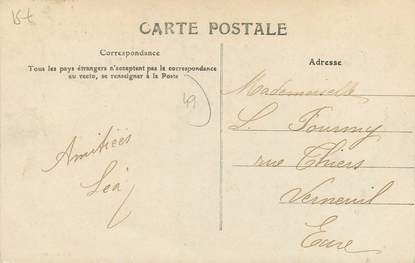 15€
CARTE POSTALE
Correspondance
Tous les pays étrangers n'acceptent pas la correspondance
au recto, se renseigner à la Poste
Adresse
49
Mademoiselle
L. Fourmy
rue Thiers
Verneuil
Eure
Amitiées
Léa